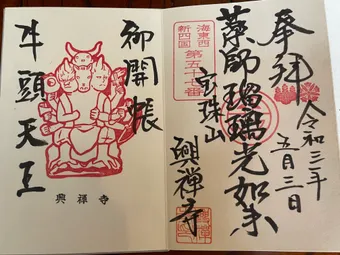 奉拝
令和三年
五月三日
薬師瑠璃光如来
海東西
新四国
第五十七番
宝珠山
興禅寺
御開帳
牛頭天王
興禅寺